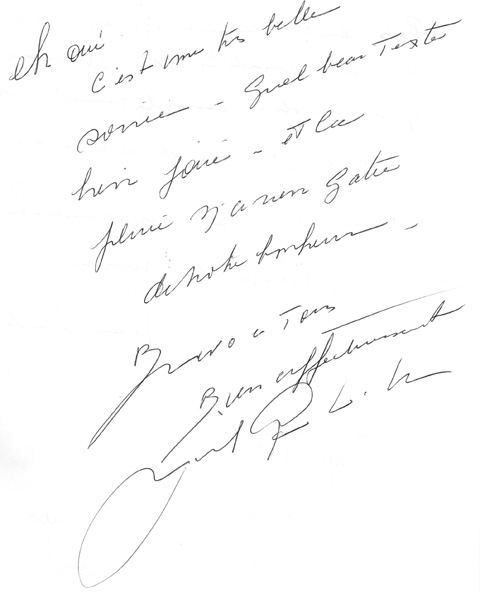 eh oui
c'est une très belle
soirée - Quel beau Texte
bien joué - et la
pluie n'a rien gatée
de notre bonheur -
Bravo a Tous
Bien affectueusement